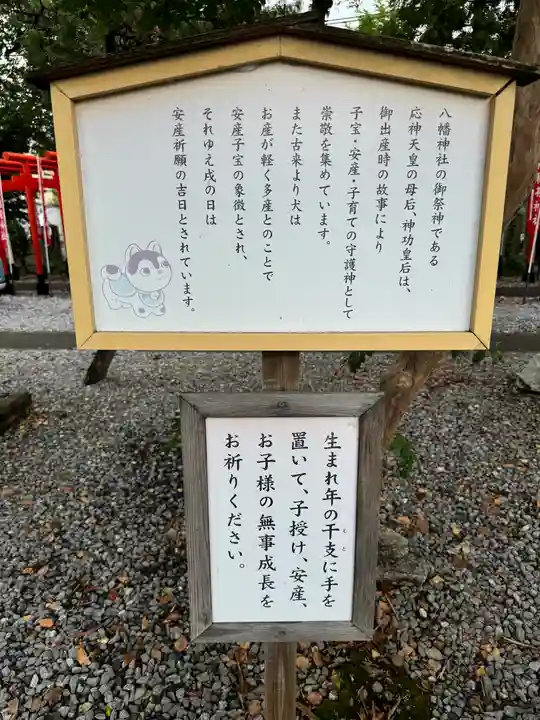 八幡神社の御祭神である
応神天皇の母后、神功皇后は、
御出産時の故事により
子宝・安産・子育ての守護神として
崇敬を集めています。
また古来より犬は
お産が軽く多産とのことで
安産子宝の象徴とされ、
それゆえ戌の日は
安産祈願の吉日とされています。
生まれ年の干支に手を
えと
置いて、子授け、安産、
お子様の無事成長を
お祈りください。